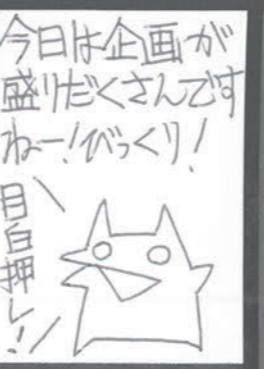 今日は企画が
盛りだくさんです
ねー!びっくり!
目白押し!